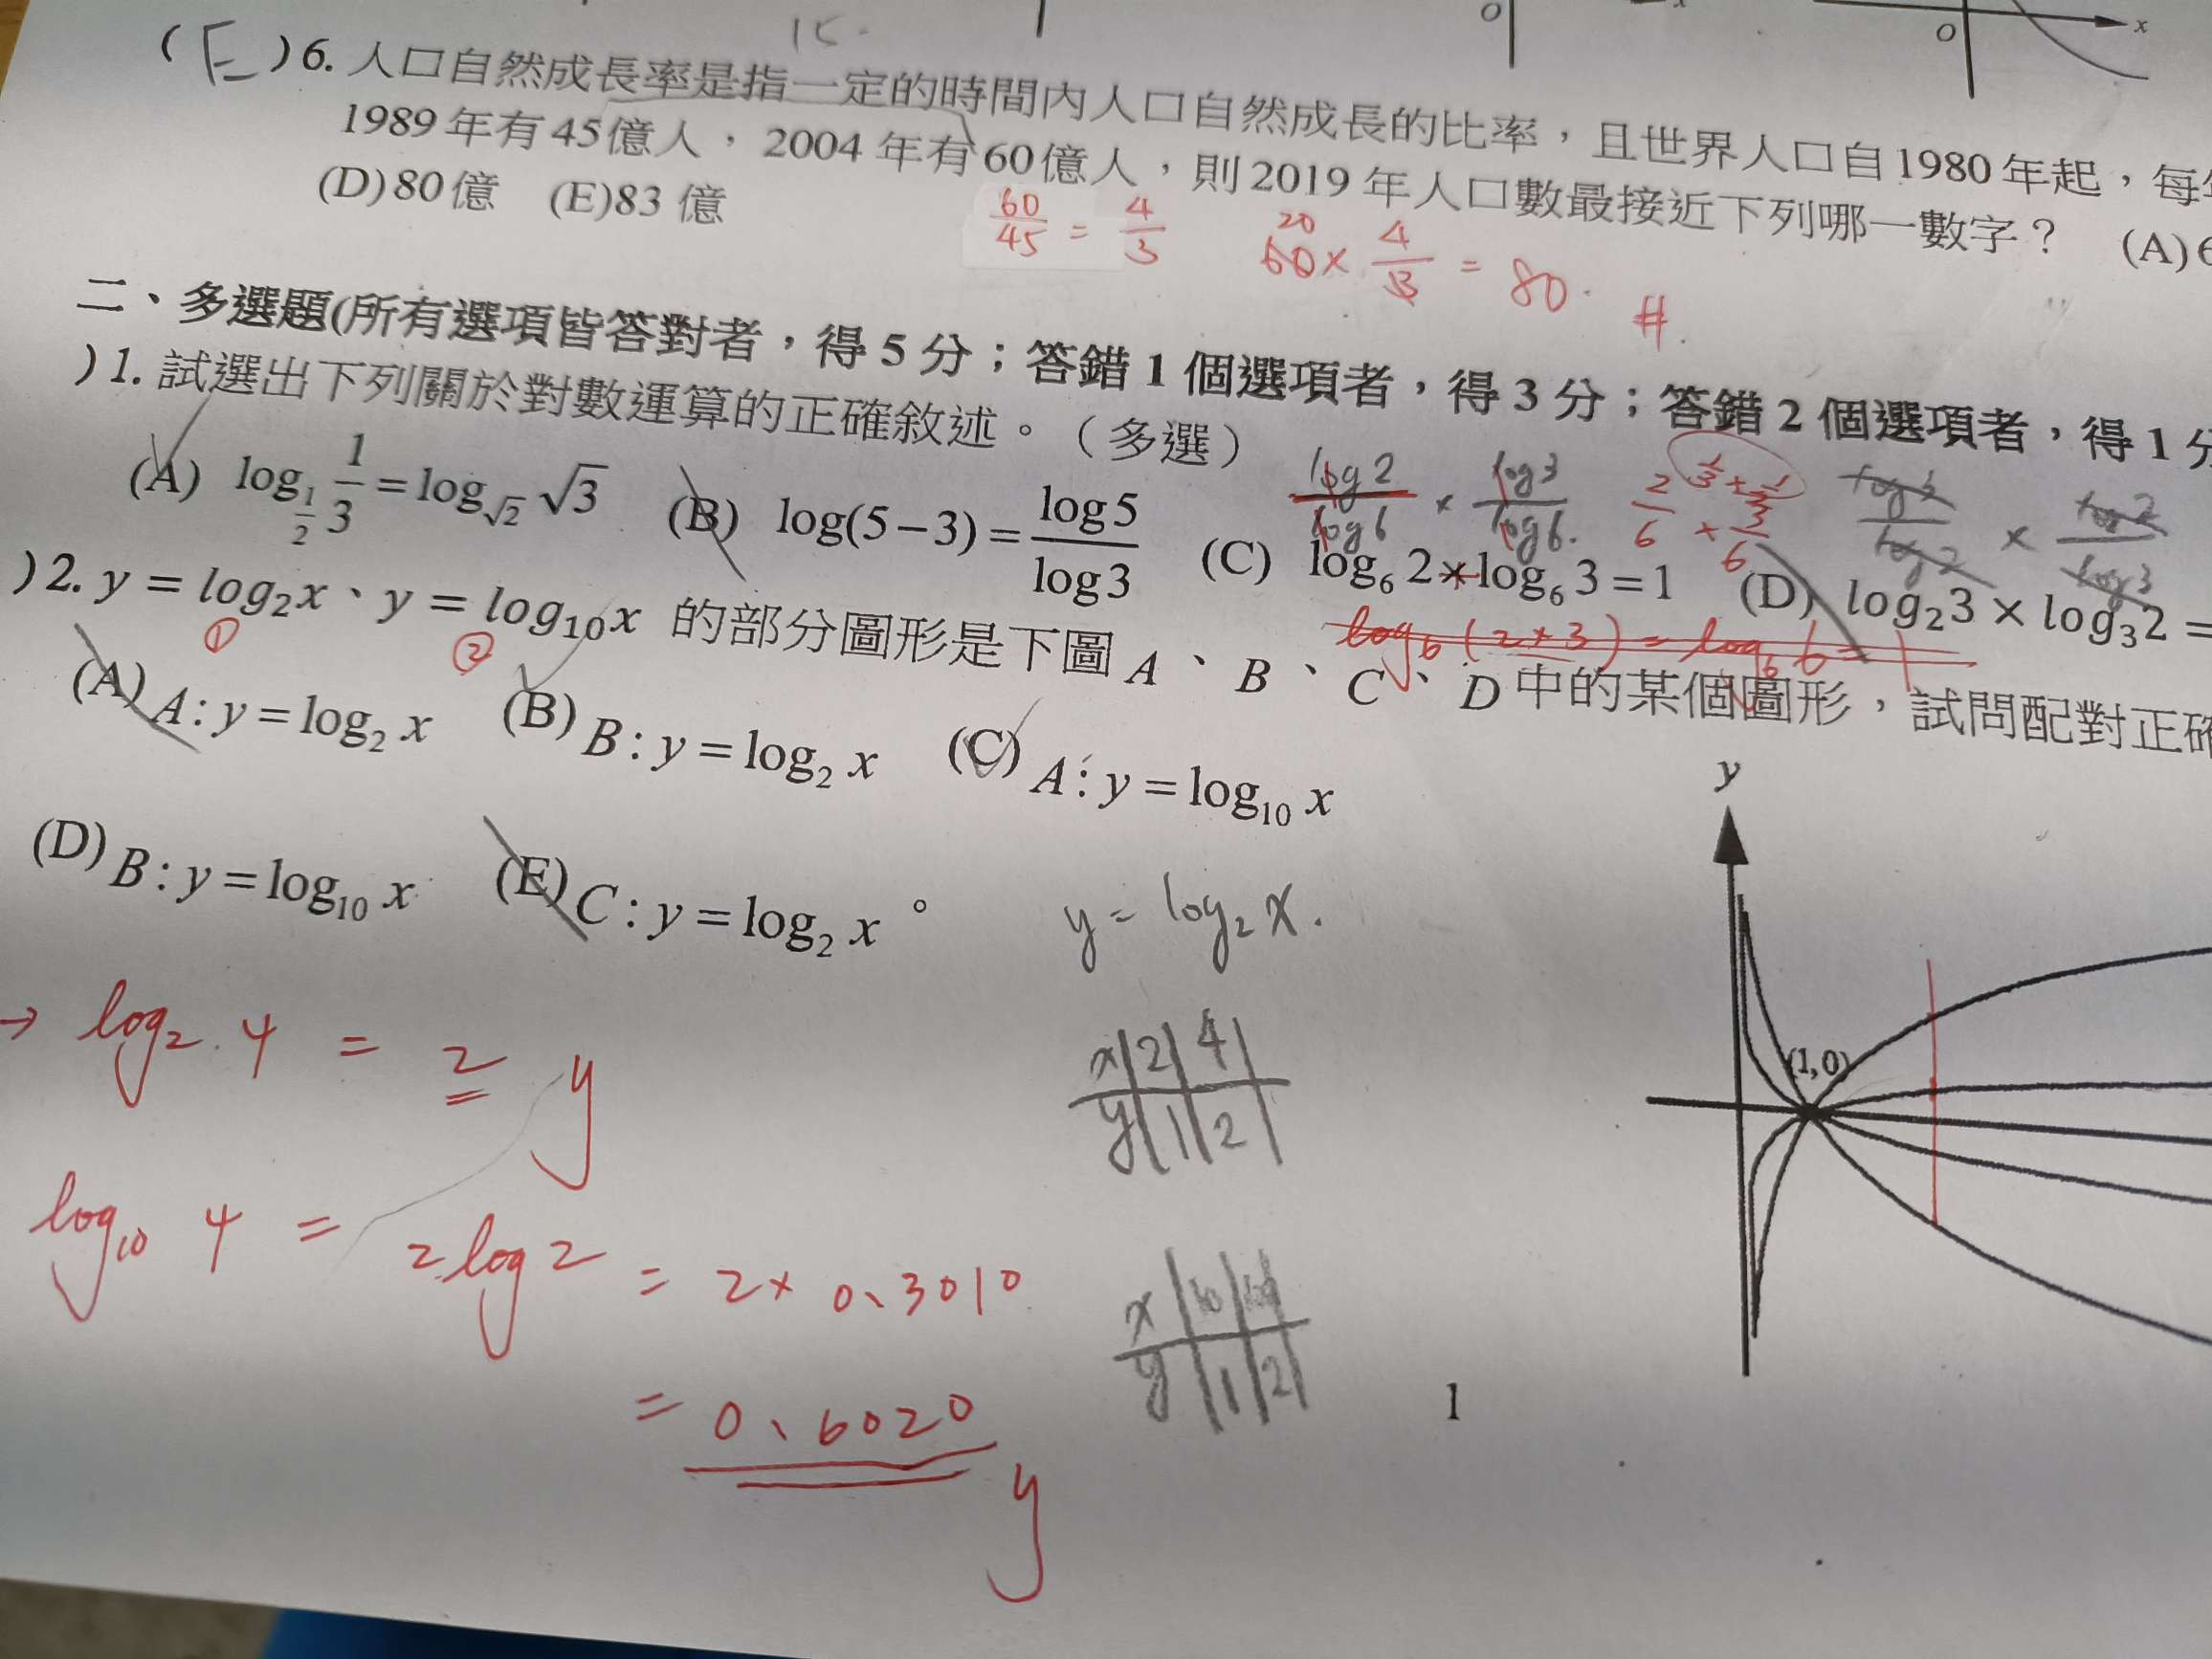 15.
O
x
O
x
( E ) 6. 人口自然成長率是指一定的時間內人口自然成長的比率，且世界人口自1980年起，每
1989年有45億人，2004年有60億人，則2019年人口數最接近下列哪一數字？ (A) 6
(D) 80億 (E) 83億
60/45 = 4/3
20
60 × 4/3 = 80. #
二、多選題(所有選項皆答對者，得5分；答錯1個選項者，得3分；答錯2個選項者，得1分
) 1. 試選出下列關於對數運算的正確敘述。（多選）
log2/log6 × log3/log6.
2/6 × 3/6
1/3 +
log3/log2 × log2/log3
(A) log_{1/2} 1/3 = log_{√2} √3 (B) log(5-3) = log5/log3 (C) log₆2 × log₆3 = 1 (D) log₂3 × log₃2 =
log₆(2×3) = log₆6 = 1
) 2. y = log₂x、y = log₁₀x 的部分圖形是下圖 A、B、C、D 中的某個圖形，試問配對正確
① ②
(A) A: y = log₂ x (B) B: y = log₂ x (C) A: y = log₁₀ x
(D) B: y = log₁₀ x (E) C: y = log₂ x 。
y = log₂x.
→ log₂ 4 = 2 y
x | 2 | 4 |
y | 1 | 2 |
log₁₀ 4 = 2log2 = 2× 0.3010
= 0.6020 y
x | 10 | 100
y | 1 | 2 |
y
(1,0)
1